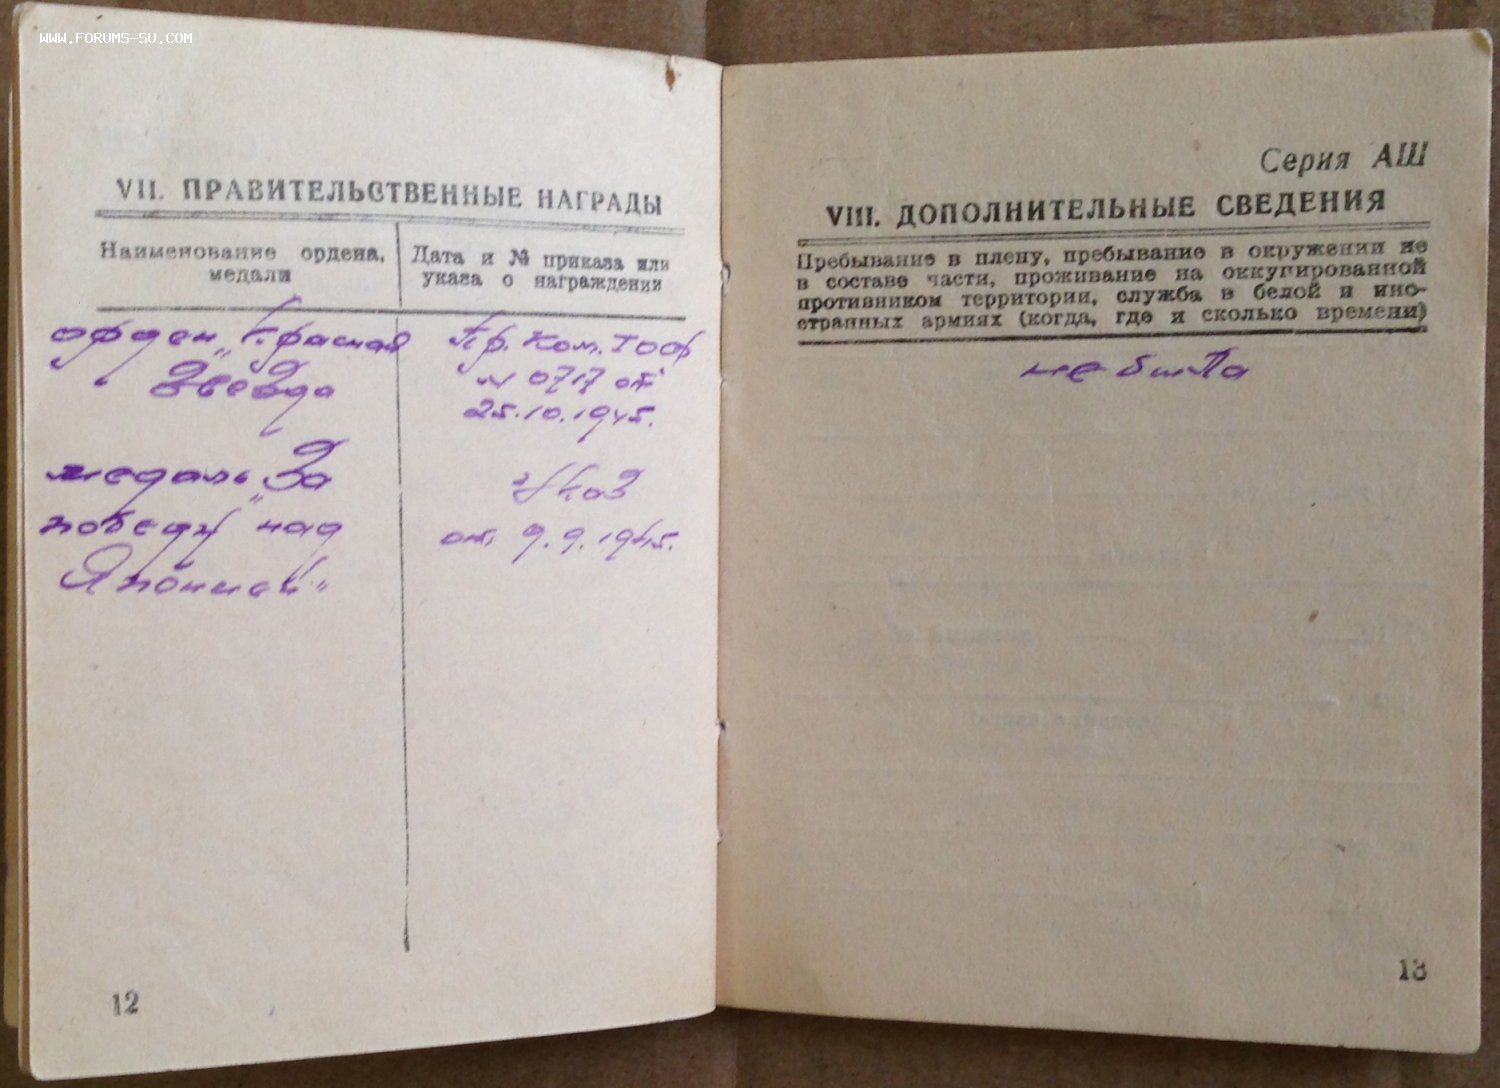 WWW.FORUMS-SU.COM
VII. ПРАВИТЕЛЬСТВЕННЫЕ НАГРАДЫ
Наименование ордена,
медали
Дата и № приказа или
указа о награждении
орден „Красная
Звезда
Пр. Ком. ТОФ
№ 0717 от
25.10.1945.
медаль „За
победу над
Японией"
Указ
от 9.9.1945.
12
Серия АШ
VIII. ДОПОЛНИТЕЛЬНЫЕ СВЕДЕНИЯ
Пребывание в плену, пребывание в окружении не
в составе части, проживание на оккупированной
противником территории, служба в белой и ино-
странных армиях (когда, где и сколько времени)
не была
13